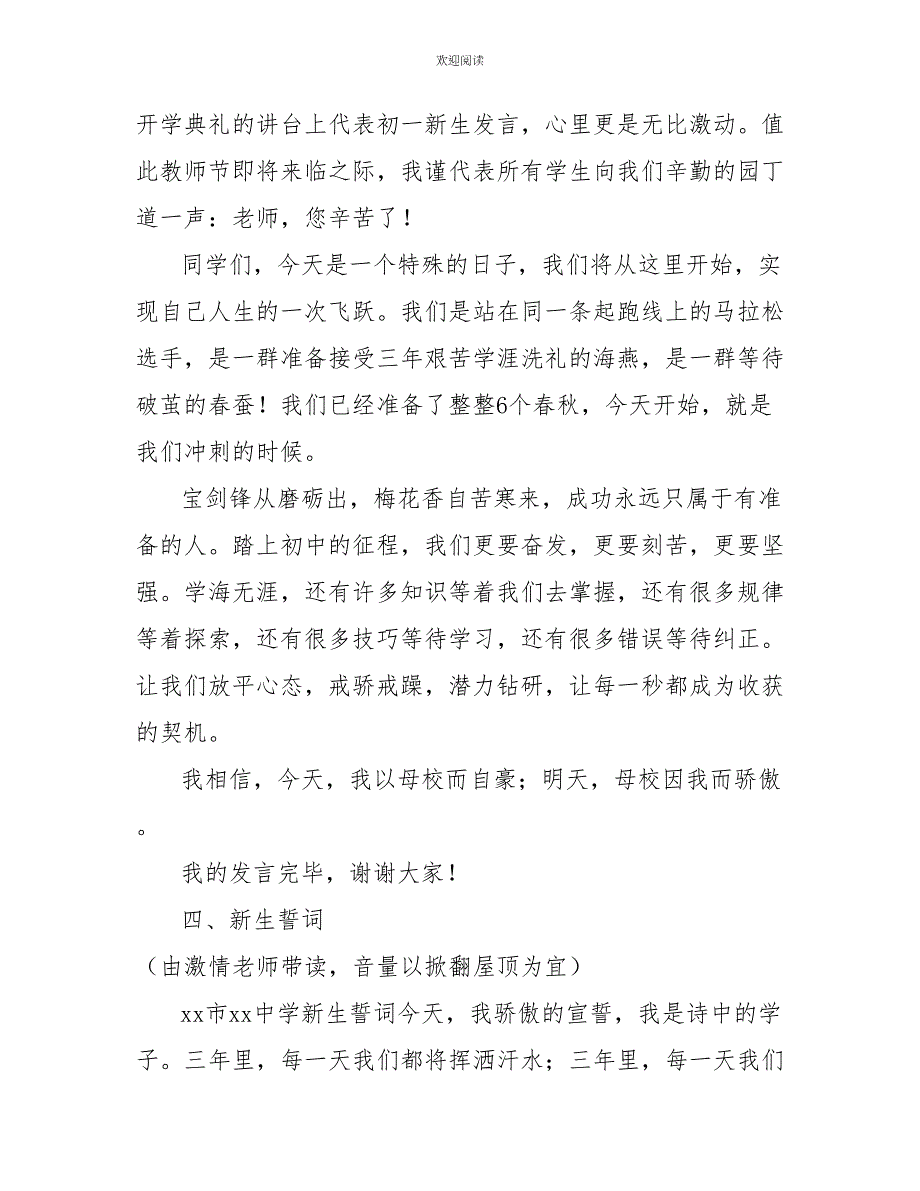 欢迎阅读
开学典礼的讲台上代表初一新生发言，心里更是无比激动。值
此教师节即将来临之际，我谨代表所有学生向我们辛勤的园丁
道一声：老师，您辛苦了！
同学们，今天是一个特殊的日子，我们将从这里开始，实
现自己人生的一次飞跃。我们是站在同一条起跑线上的马拉松
选手，是一群准备接受三年艰苦学涯洗礼的海燕，是一群等待
破茧的春蚕！我们已经准备了整整6个春秋，今天开始，就是
我们冲刺的时候。
宝剑锋从磨砺出，梅花香自苦寒来，成功永远只属于有准
备的人。踏上初中的征程，我们更要奋发，更要刻苦，更要坚
强。学海无涯，还有许多知识等着我们去掌握，还有很多规律
等着探索，还有很多技巧等待学习，还有很多错误等待纠正。
让我们放平心态，戒骄戒躁，潜力钻研，让每一秒都成为收获
的契机。
我相信，今天，我以母校而自豪；明天，母校因我而骄傲
。
我的发言完毕，谢谢大家！
四、新生誓词
（由激情老师带读，音量以掀翻屋顶为宜）
xx市xx中学新生誓词今天，我骄傲的宣誓，我是诗中的学
子。三年里，每一天我们都将挥洒汗水；三年里，每一天我们